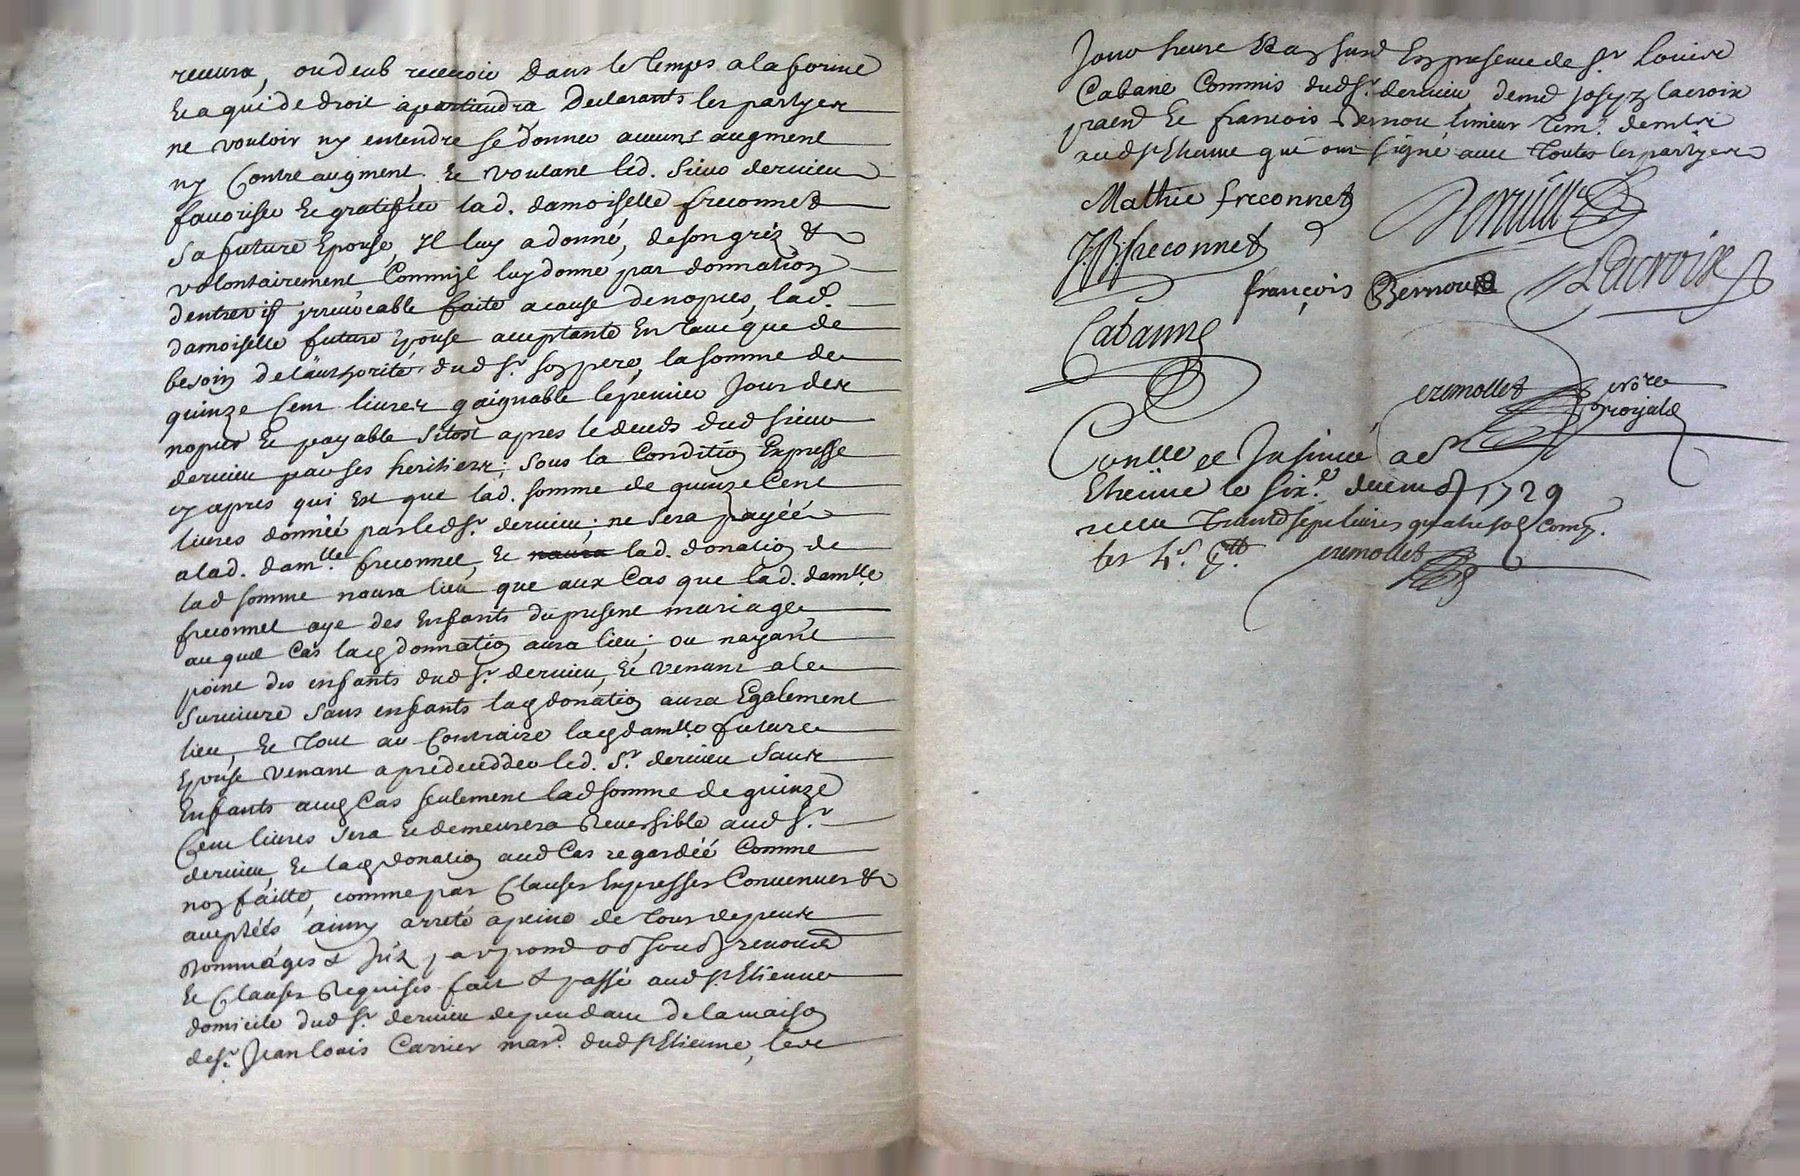 receura, ou deub recevoir dans le temps a la forme
Et a qui de droit apartiendra, Declarants les partyes
ne vouloir ny entendre se donner aucuns augment
ny Contre augment, Et voulant led. Sieur dervieu
favoriser Et gratifier lad. damoiselle freconnet
Sa future Epouse, Il luy a donné, de son gréz &
volontairement Comm'jl luy donne par donnation
d'entrevif jrrevocable faite a cause de nopces, lad.
damoiselle future Epouse acceptante En tant que de
besoin de l'authorité dud Sr. son pere, la somme de
quinze Cent livres gaignable le premier Jour des
nopces Et payable sitost apres le deceds dud Sieur
dervieu par ses heritiers; sous la Condition Expresse
cy apres qui Est que lad. somme de quinze Cent
livres donnée par led Sr. dervieu; ne sera payée
a lad. damlle. freconnet, Et naura lad. donation de
lad somme naura lieu que aux Cas que lad. damlle.
freconnet aye des Enfants du present mariage
au quel Cas lad donnation aura lieu; ou nayant
point des enfants dud Sr. dervieu, Et venant a le
Survivre Sans enfants lad donation aura Egalement
lieu, Et Tout au Contraire lad damlle future
Epouse venant a predecedder led. Sr. dervieu Sans
Enfants aud Cas seulement lad somme de quinze
Cent livres sera Et demeurera Reversible aud Sr.
dervieu, Et lad donation aud Cas regardée Comme
non faitte, comme par Clauses Expresses Convenues &
acceptéés ainsy arreté a peine de Tous depens
Dommages &
Et Clauses Requises fait & passé aud St Etienne
domicile dud Sr. dervieu dependant de la maison
de Sr. Jean Louis Carrier mard. dud St Etienne, les
Jour heure En presence de Sr Louis
Cabane Commis dud Sr. dervieu, demd joseph lacroix
praend Et francois Bernou limeur Tem. demts
aud St Etienne qui ont signé avec Toutes les partyes
Mathie freconnet Dervieu
J B freconnet Lacroix
françois Bernou
Cabanne
cremollet nore
royal
Conlle et Insinué a St
Etienne le six.e decemb 1729
receu Trente sept livres quatre sols comp.
les 4s. cremollet